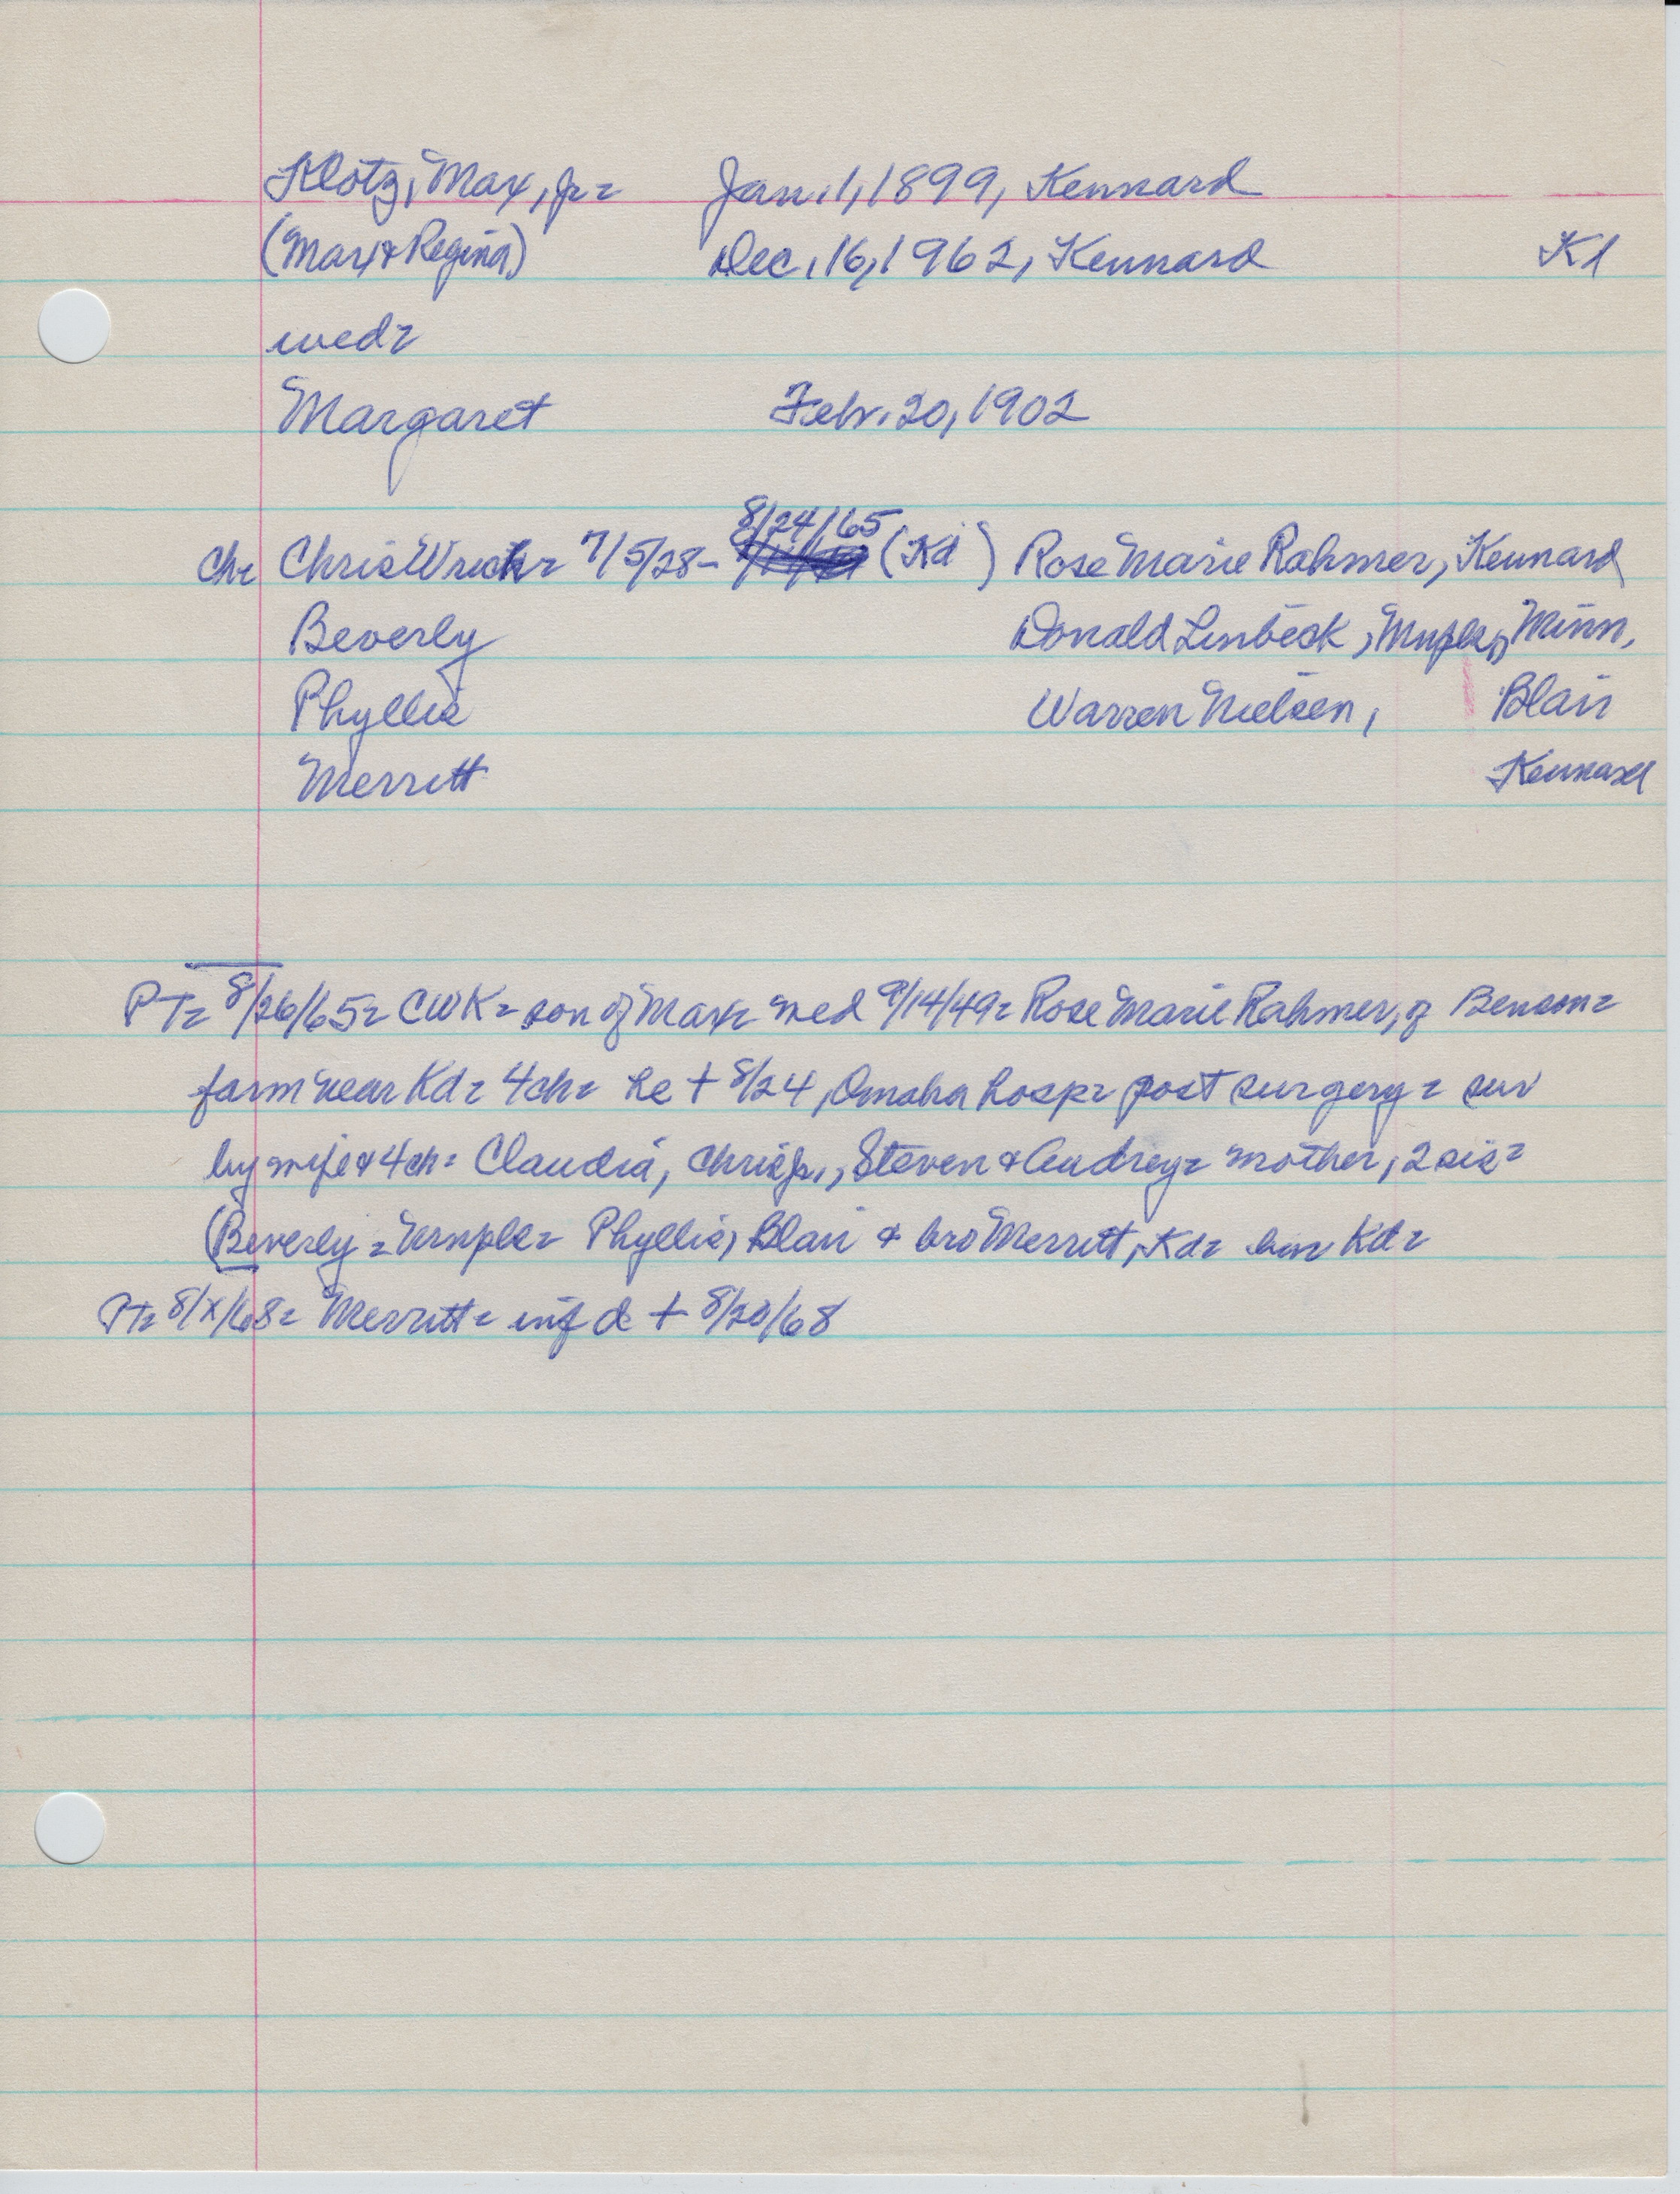 Klotz, Max, Jr = Jan. 1, 1899, Kennard
(Max & Regina) Dec. 16, 1962, Kennard Kl
wed =
Margaret Febr. 20, 1902
8/24/65
ch = Chris = 7/5/28 - (Kd) Rose Marie Rahmer, Kennard
Beverly Donald Linbeck, Mnpls, Minn,
Phyllis Warren Nielsen, Blair
Merritt Kennard
PT = 8/26/65 = CWK = son of Max = wed 9/14/49 = Rose Marie Rahmer, of Benson =
farm near Kd = 4 ch = he + 8/24, Omaha hosp = post surgery = sur
by wife & 4 ch = Claudia, Chris Jr., Steven & Audrey = mother, 2 sis =
(Beverly = Mnpls = Phyllis, Blair & bro Merritt, Kd = Kd =
PT = 8/x/68 = Merritt = inf d + 8/20/68